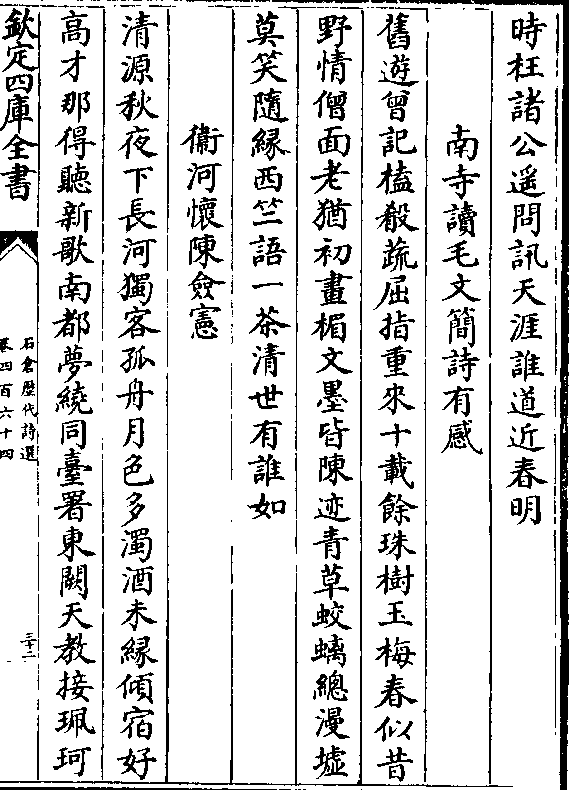 時枉諸公遥問訊天涯誰道近春明
南寺讀毛文簡詩有感
舊遊曾記榼殽蔬屈指重來十載餘珠樹玉梅春似昔
野情僧面老猶初畫楣文墨皆陳迹青草蛟螭總漫墟
莫笑隨緣西竺語一茶清世有誰如
衞河懷陳僉憲
清源秋夜下長河獨客孤舟月色多濁酒未緣傾宿好
高才那得聽新歌南都夢繞同臺署東闕天教接珮珂
欽定四庫全書
石倉歴代詩選
卷四百六十四
三十二